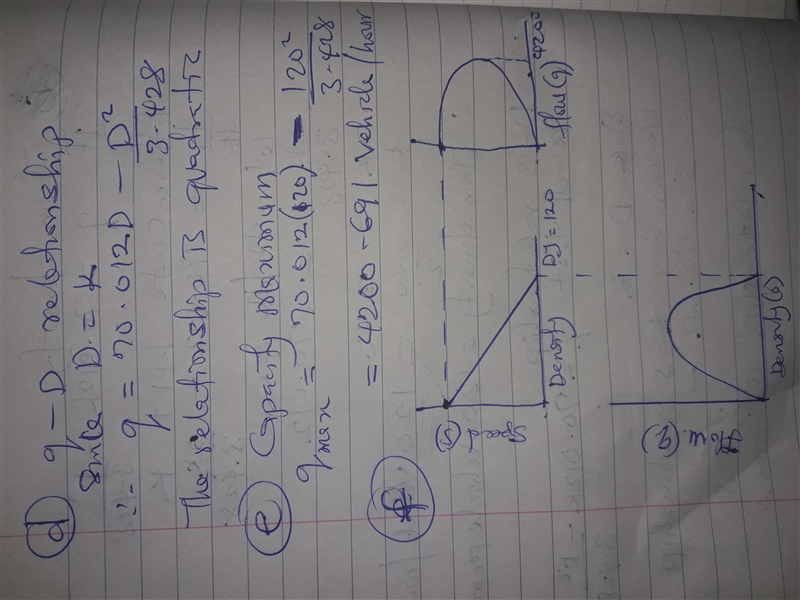 d q - D relationship
Since D = K
∴ q = 70.012D - D²/3.428
The relationship is quadratic
e Capacity Maximum
q max = 70.012(120) - 120²/3.428
= 4200.691 vehicle/hour
f
Speed (u)
Density Dj = 120
flow (q) 4200
flow (q)
Density (D)